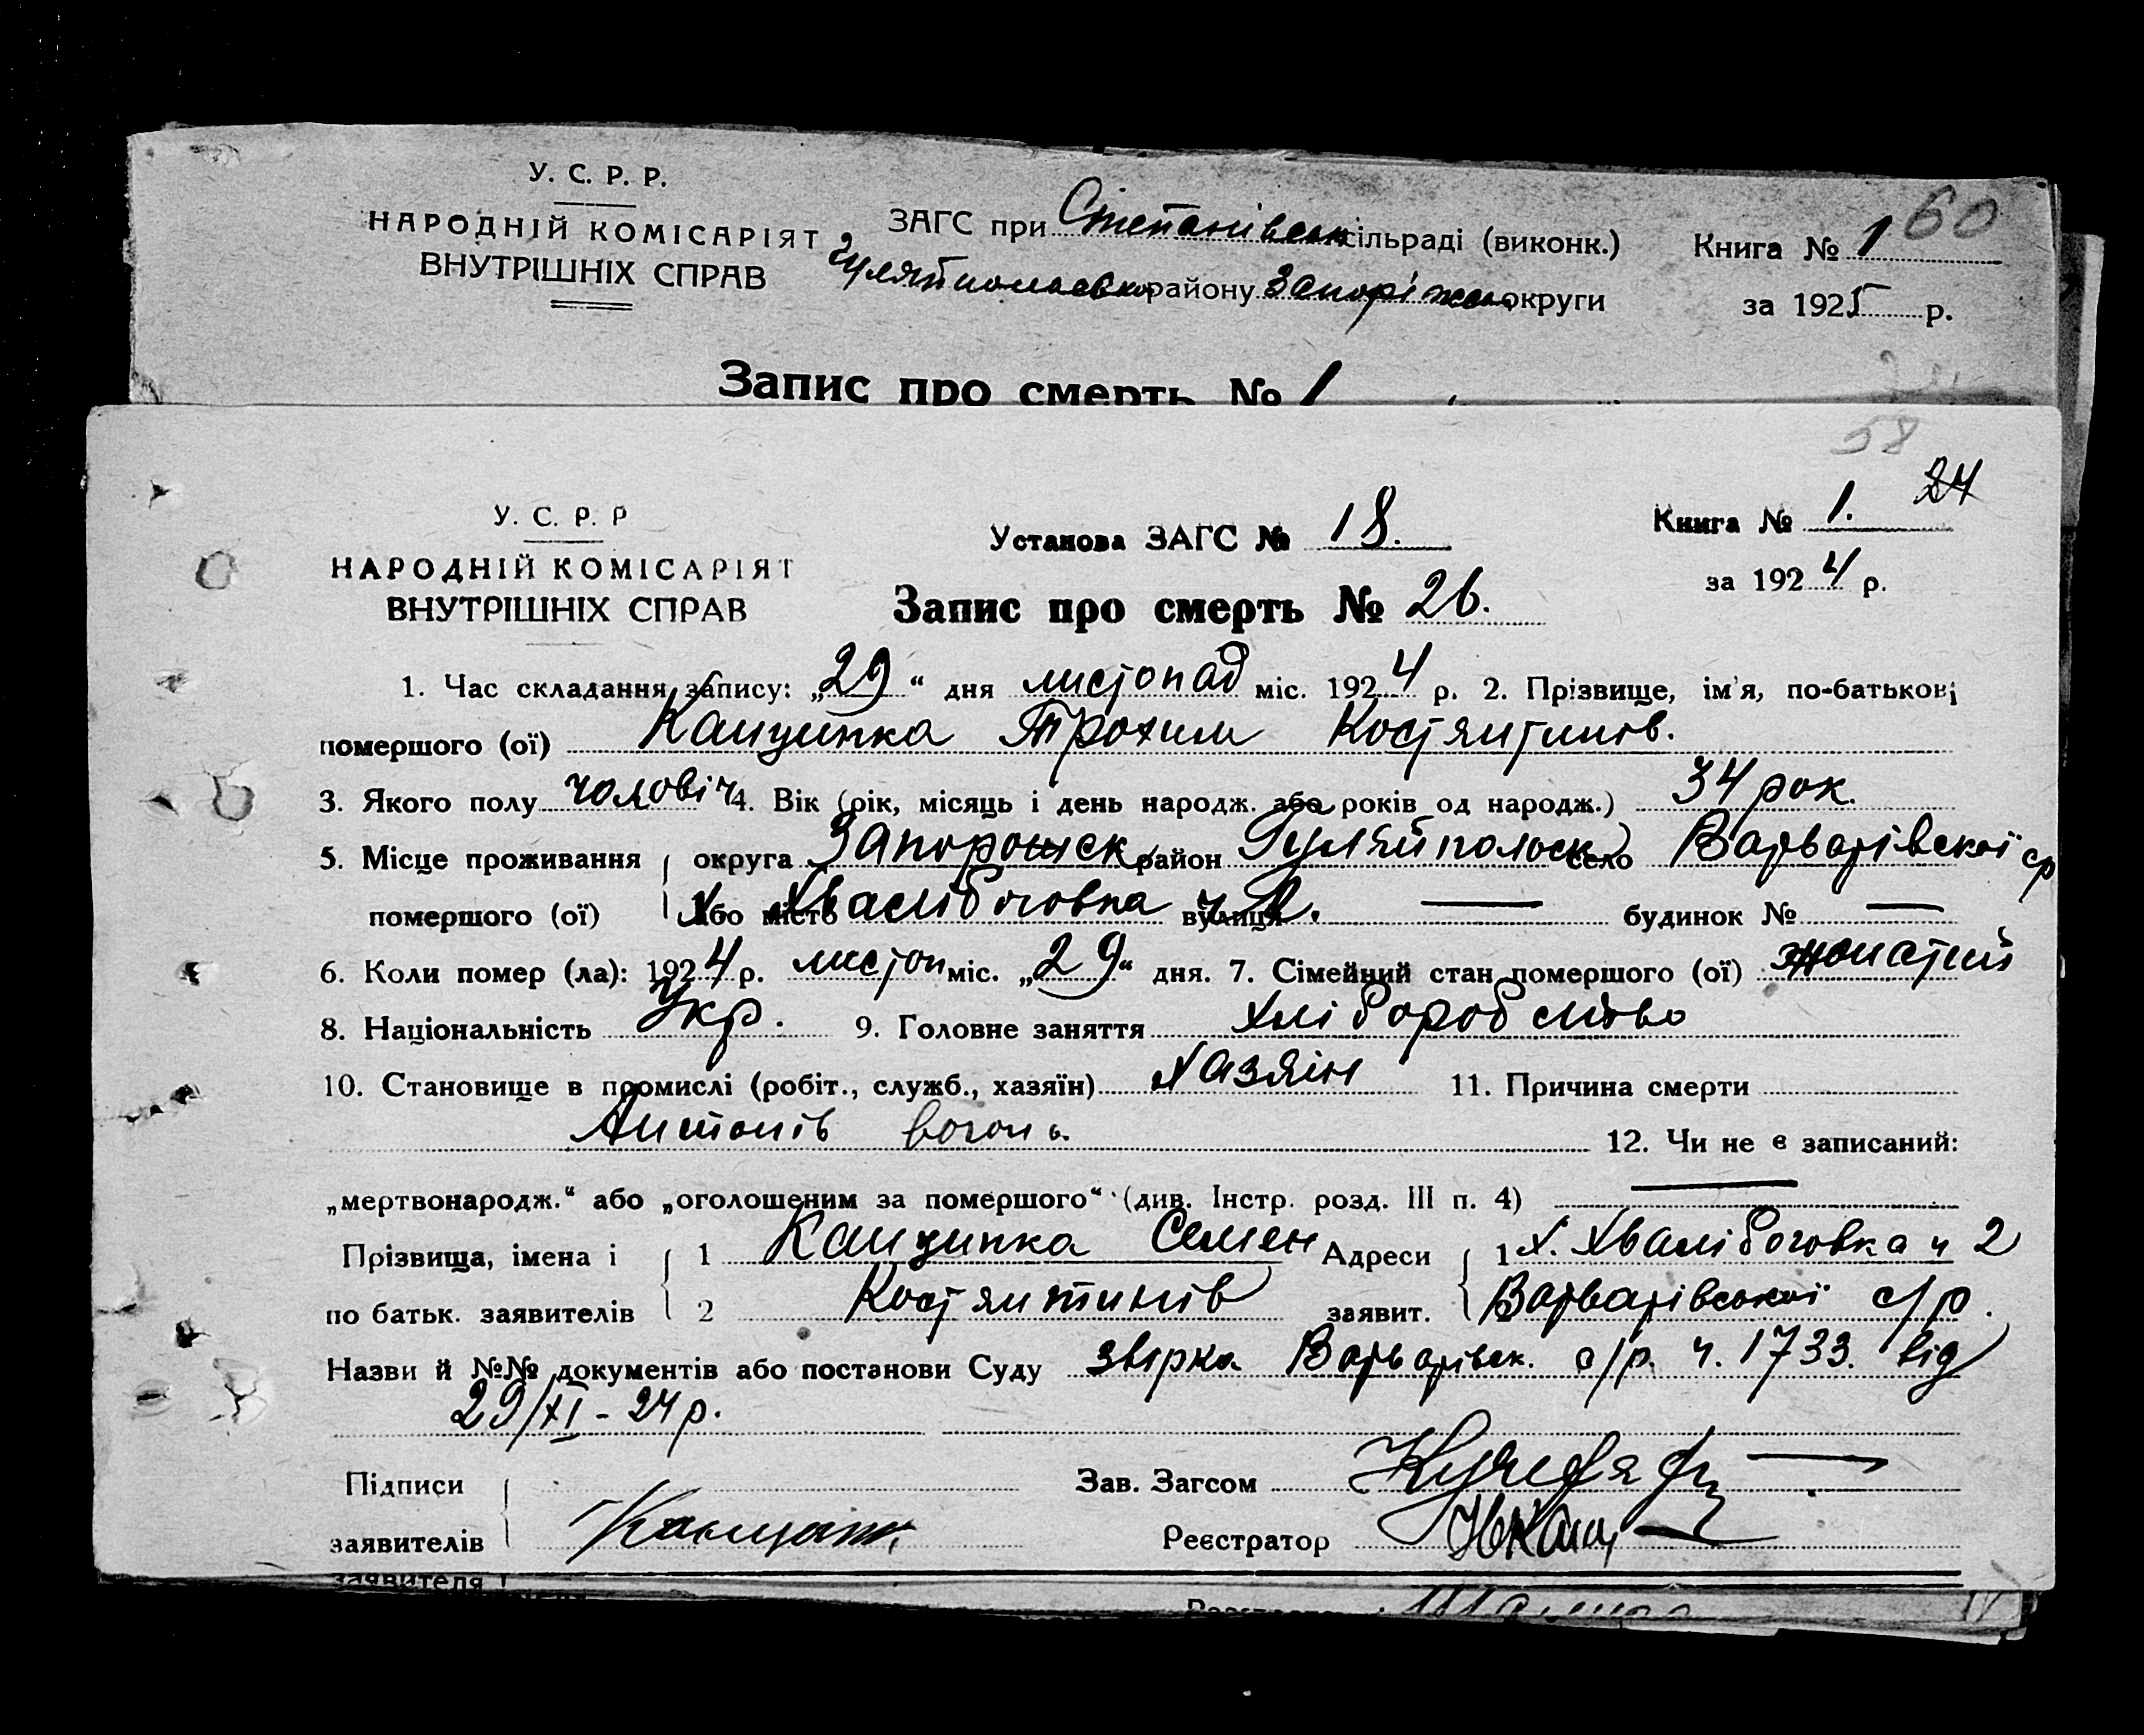 У. С. Р. Р.
НАРОДНІЙ КОМІСАРІЯТ
ВНУТРІШНІХ СПРАВ
ЗАГС при Степанівськ сільраді (виконк.)
Гуляйполаевко району Запоріжськ округи
Книга № 1 60
за 1925 р.
Запис про смерть № 1
58
У. С. Р. Р
НАРОДНІЙ КОМІСАРІЯТ
ВНУТРІШНІХ СПРАВ
Установа ЗАГС № 18.
Книга № 1. 24
за 1924 р.
Запис про смерть № 26.
1. Час складання запису: „29“ дня листопад міс. 1924 р. 2. Прізвище, ім'я, по-батькові
помершого (ої) Кащипка Трохим Костянтинів.
3. Якого полу чоловіч 4. Вік (рік, місяць і день народж. або років од народж.) 34 рок.
5. Місце проживання округа Запорошск район Гуляйполоск село Варварівскої ср
помершого (ої) або місто Х Хвалібоговка ч 2. вулиця — будинок № —
6. Коли помер (ла): 1924 р. листоп міс. „29“ дня. 7. Сімейний стан помершого (ої) жонатий
8. Національність Укр. 9. Головне заняття хліборобство
10. Становище в промислі (робіт., служб., хазяїн) хазяін 11. Причина смерти
Антонів вогонь. 12. Чи не є записаний:
„мертвонародж.“ або „оголошеним за помершого“ (див. Інстр. розд. III п. 4) —
Прізвища, імена і 1 Кащипка Семен Адреси 1 х. Хвалібоговка ч 2
по батьк. заявителів 2 Костянтинів заявит. 2 Варварівської с/р.
Назви й №№ документів або постанови Суду звірка Варварівск. с/р. ч. 1733. від
29/XI - 24 р.
Підписи
Зав. Загсом
заявителів
Реєстратор
заявителя